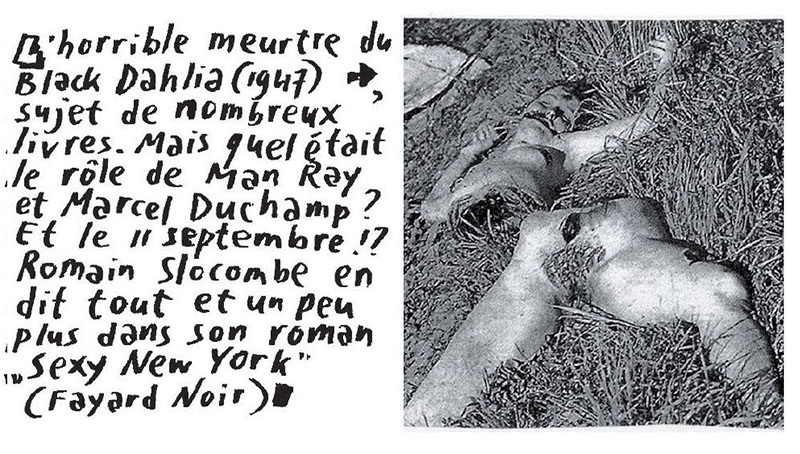 L'horrible meurtre du
Black Dahlia (1947) →,
sujet de nombreux
livres. Mais quel était
le rôle de Man Ray
et Marcel Duchamp ?
Et le 11 septembre !?
Romain Slocombe en
dit tout et un peu
plus dans son roman
„Sexy New York"
(Fayard Noir)